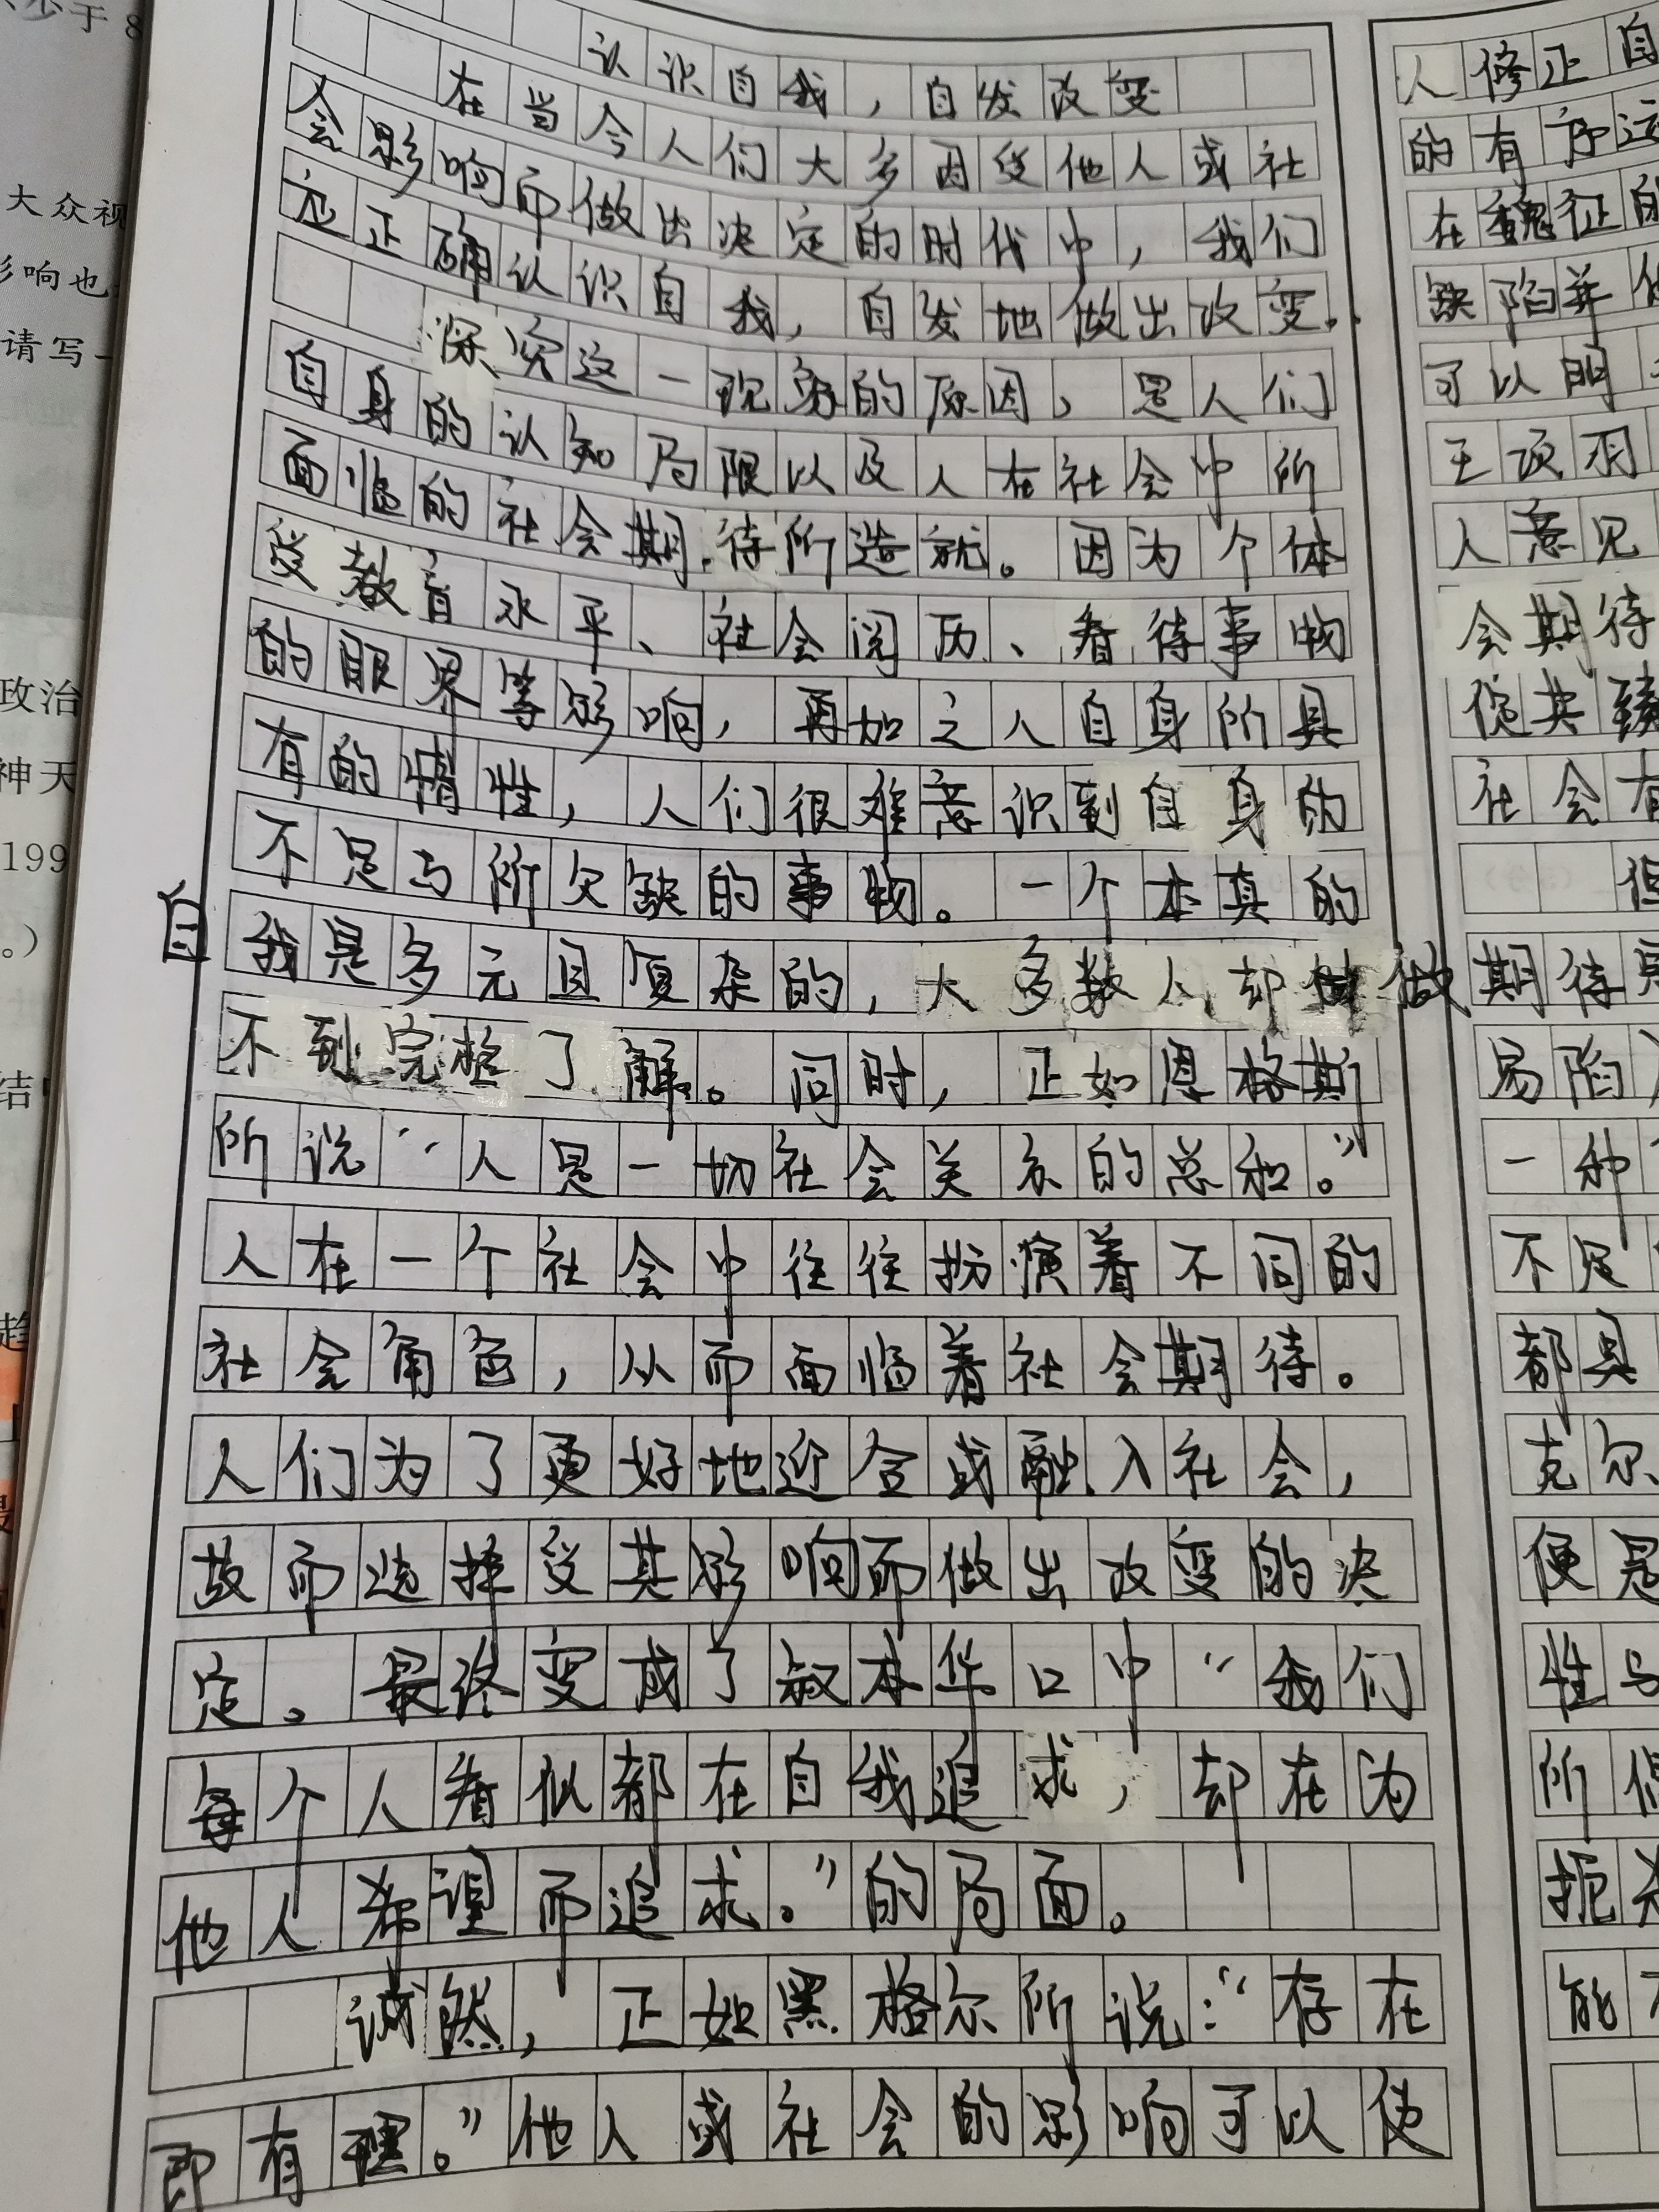 认识自我，自发改变
在当今人们大多因受他人或社
会影响而做出决定的时代中，我们
应正确认识自我，自发地做出改变。
深究这一现象的原因，是人们
自身的认知局限以及人在社会中所
面临的社会期待所造就。因为个体
受教育水平、社会阅历、看待事物
的眼界等影响，再加之人自身所具
有的惰性，人们很难意识到自身的
不足与所欠缺的事物。一个本真的
自我是多元且复杂的，大多数人却做
不到完整了解。同时，正如恩格斯
所说“人是一切社会关系的总和。”
人在一个社会中往往扮演着不同的
社会角色，从而面临着社会期待。
人们为了更好地迎合或融入社会，
故而选择受其影响而做出改变的决
定。最终变成了叔本华口中“我们
每个人看似都在自我追求，却在为
他人希望而追求。”的局面。
诚然，正如黑格尔所说：“存在
即有理。”他人或社会的影响可以使
人修正自
的有序运
在魏征的
缺陷并
可以明
王项羽
人意见
会期待
使其
社会有
但
期待
易陷入
一种
不足
都具
克尔
便是
性与
所
扼杀
能
少于8
大众视
影响也
请写一
政治
神天
199
。）
结